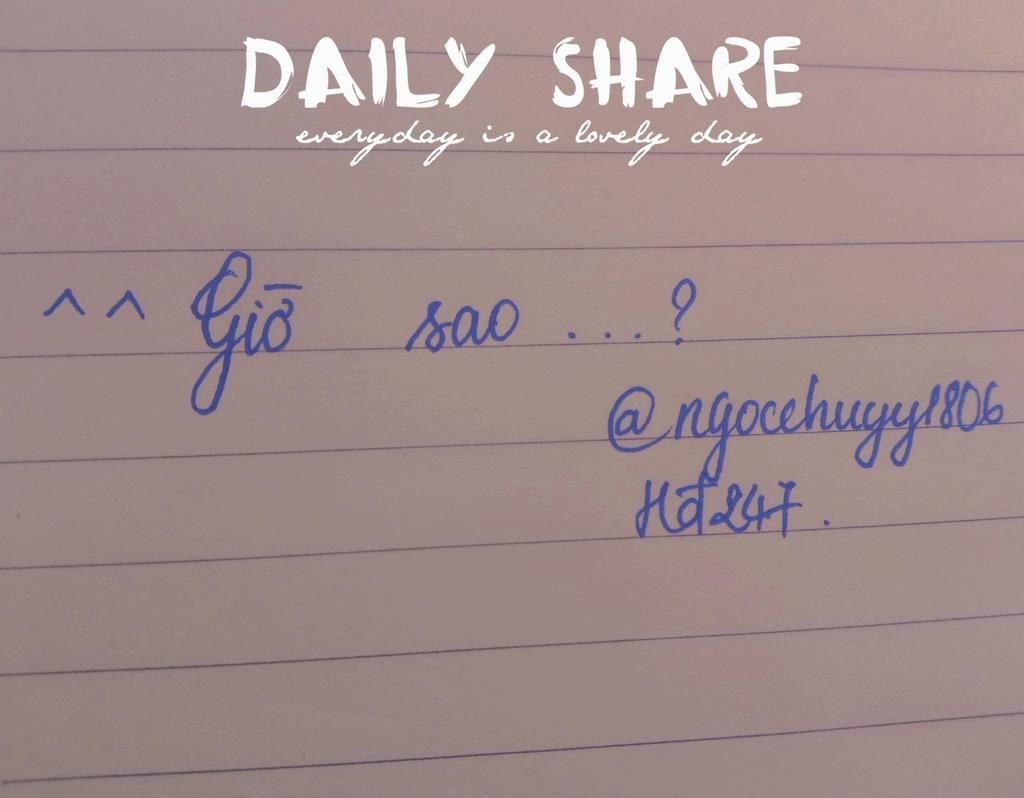 DAILY SHARE
everyday is a lovely day
^^ Giờ sao ...?
@ngocchugy1806
Hđ247.